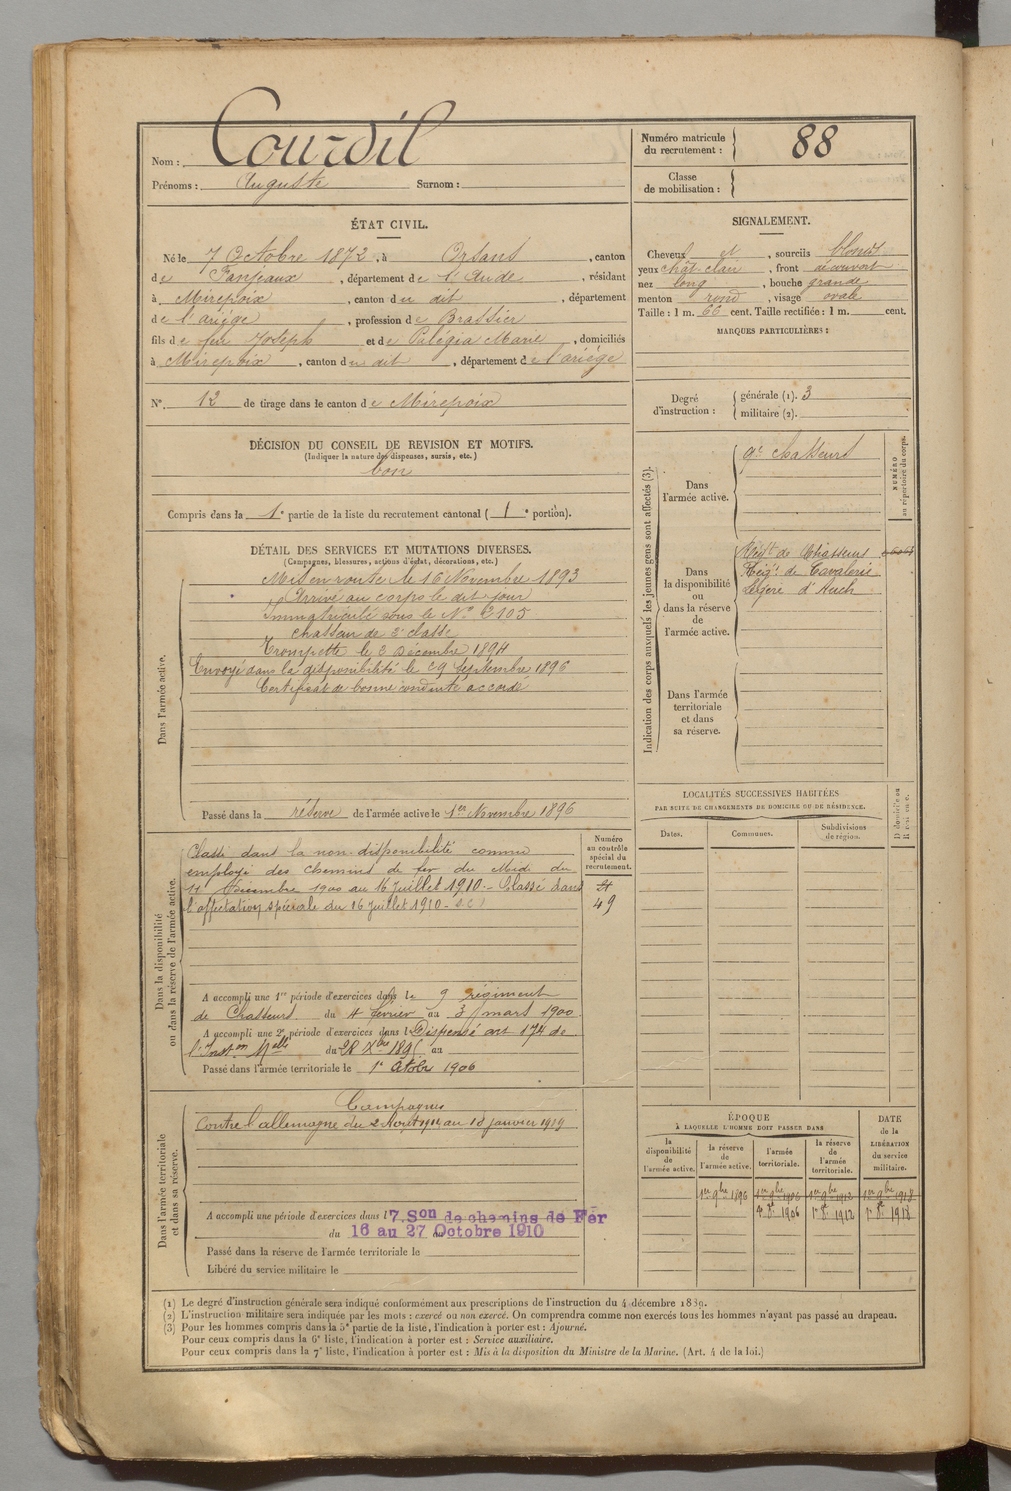 Nom : Courdil
Prénoms : Auguste Surnom :
Numéro matricule du recrutement : 88
Classe de mobilisation :
ÉTAT CIVIL.
Né le 7 Octobre 1872, à Orsans, canton
de Fanjeaux, département de l'Aude, résidant
à Mirepoix, canton du dit, département
de l'ariège, profession de Brassier
fils de feu Joseph et de Palégia Marie, domiciliés
à Mirepoix, canton du dit, département de l'ariège
N° 12 de tirage dans le canton de Mirepoix
DÉCISION DU CONSEIL DE REVISION ET MOTIFS.
(Indiquer la nature des dispenses, sursis, etc.)
bon
Compris dans la 1e partie de la liste du recrutement cantonal (1e portion).
SIGNALEMENT.
Cheveux et, sourcils blonds
yeux chât clair, front découvert
nez long, bouche grande
menton rond, visage ovale
Taille : 1 m. 66 cent. Taille rectifiée : 1 m. cent.
MARQUES PARTICULIÈRES :
Degré d'instruction : générale (1). 3
militaire (2).
DÉTAIL DES SERVICES ET MUTATIONS DIVERSES.
(Campagnes, blessures, actions d'éclat, décorations, etc.)
Dans l'armée active.
Mis en route le 16 Novembre 1893
Arrivé au corps le dit jour
Immatriculé sous le N° 2105
chasseur de 2e classe
Trompette le 2 Décembre 1894
Envoyé dans la disponibilité le 29 Septembre 1896
Certificat de bonne conduite accordé
Passé dans la réserve de l'armée active le 1er Novembre 1896
Indication des corps auxquels les jeunes gens sont affectés (3).
NUMÉRO au répertoire du corps.
Dans l'armée active.
9e Chasseurs
Dans la disponibilité ou dans la réserve de l'armée active.
Régt de Chasseurs
Régt de Cavalerie
Légère d'Auch
Dans l'armée territoriale et dans sa réserve.
LOCALITÉS SUCCESSIVES HABITÉES
PAR SUITE DE CHANGEMENTS DE DOMICILE OU DE RÉSIDENCE.
Dates. Communes. Subdivisions de région. D domicile ou R résidence.
Dans la disponibilité ou dans la réserve de l'armée active.
Numéro au contrôle spécial du recrutement.
Classé dans la non-disponibilité comme
employé des chemins de fer du Midi du
11 Décembre 1900 au 16 juillet 1910 - Classé dans
l'affectation spéciale du 16 juillet 1910 -
49
A accompli une 1re période d'exercices dans le 9 régiment
de Chasseurs du 4 février au 3 mars 1900
A accompli une 2e période d'exercices dans l Dispensé art 174 de
l'Inston Melle du 28 Xbre 1895 au
Passé dans l'armée territoriale le 1er 8tobre 1906
Dans l'armée territoriale et dans sa réserve.
Campagnes
Contre l'allemagne du 2 Aout 1914 au 10 janvier 1919
A accompli une période d'exercices dans l 7. Son de chemins de Fer
du 16 au 27 Octobre 1910
Passé dans la réserve de l'armée territoriale le
Libéré du service militaire le
ÉPOQUE
À LAQUELLE L'HOMME DOIT PASSER DANS
DATE de la LIBÉRATION du service militaire.
la disponibilité de l'armée active. la réserve de l'armée active. l'armée territoriale. la réserve de l'armée territoriale.
1er 9bre 1896 1er 9bre 1906 1er 9bre 1912 1er 9bre 1918
1906 1912 1918
(1) Le degré d'instruction générale sera indiqué conformément aux prescriptions de l'instruction du 4 décembre 1889.
(2) L'instruction militaire sera indiquée par les mots : exercé ou non exercé. On comprendra comme non exercés tous les hommes n'ayant pas passé au drapeau.
(3) Pour les hommes compris dans la 5e partie de la liste, l'indication à porter est : Ajourné.
Pour ceux compris dans la 6e liste, l'indication à porter est : Service auxiliaire.
Pour ceux compris dans la 7e liste, l'indication à porter est : Mis à la disposition du Ministre de la Marine. (Art. 4 de la loi.)